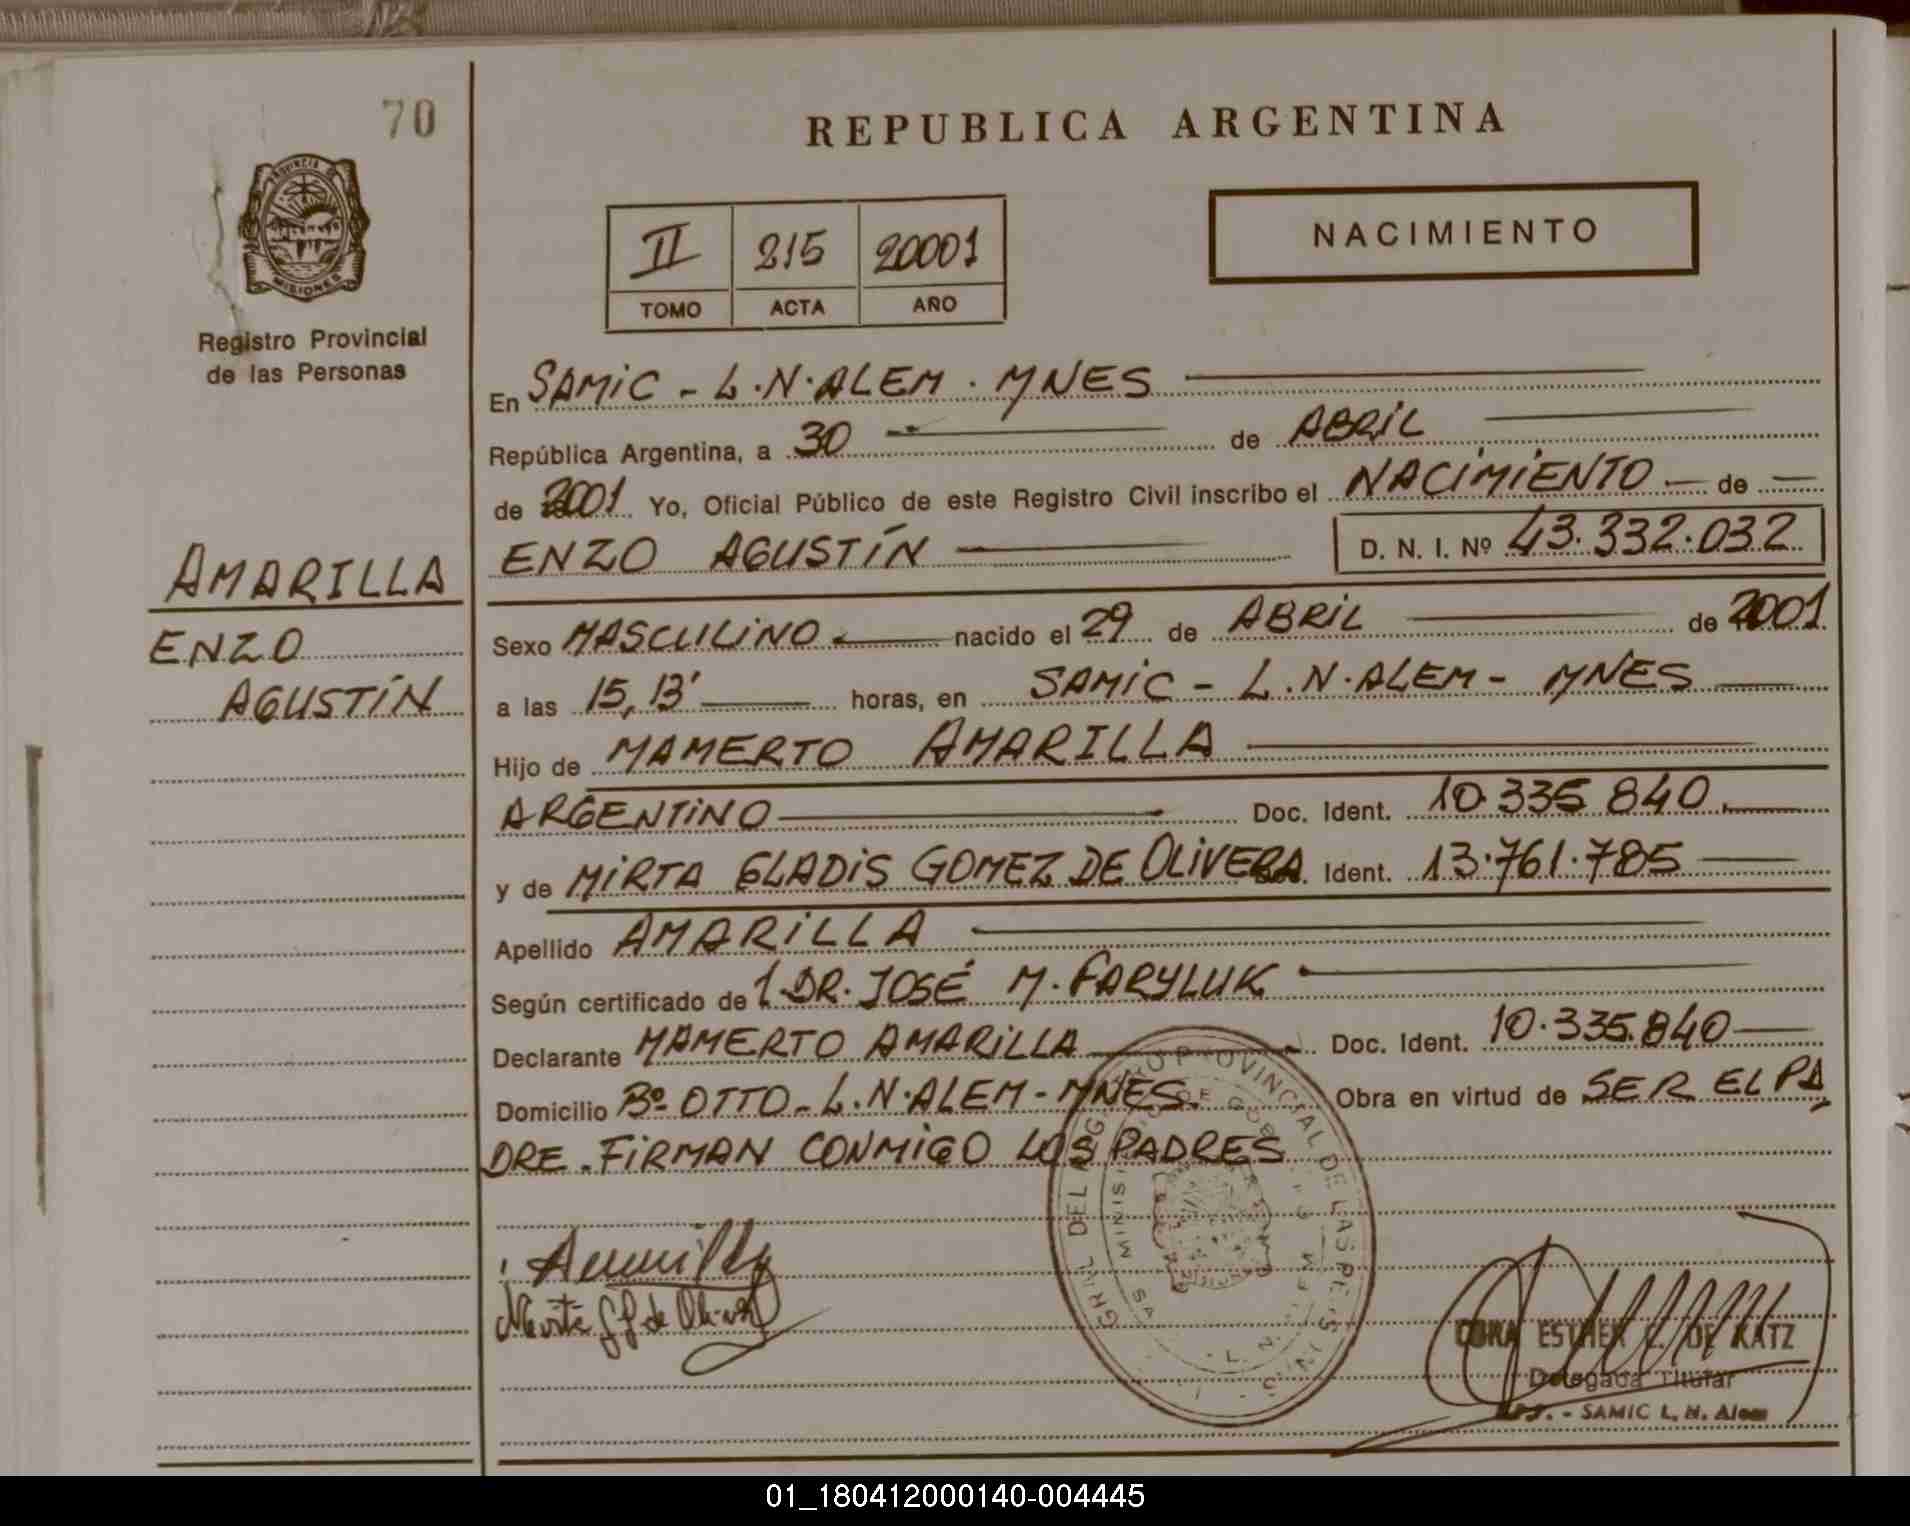 70
REPUBLICA ARGENTINA
PROVINCIA DE
MISIONES
Registro Provincial
de las Personas
II 215 20001
TOMO ACTA AÑO
NACIMIENTO
En SAMIC - L.N.ALEM . MNES
República Argentina, a 30 de ABRIL
de 2001 Yo, Oficial Público de este Registro Civil inscribo el NACIMIENTO — de —
ENZO AGUSTÍN D. N. I. Nº 43.332.032
AMARILLA
ENZO
AGUSTÍN
Sexo MASCULINO nacido el 29 de ABRIL de 2001
a las 15,13' horas, en SAMIC - L.N.ALEM - MNES
Hijo de MAMERTO AMARILLA
ARGENTINO Doc. Ident. 10.335.840
y de MIRTA GLADIS GOMEZ DE OLIVERA Ident. 13.761.785
Apellido AMARILLA
Según certificado de l DR. JOSÉ M. FARYLUK
Declarante MAMERTO AMARILLA Doc. Ident. 10.335.840
Domicilio Bº OTTO - L.N.ALEM - MNES. Obra en virtud de SER EL PA
DRE. FIRMAN CONMIGO LOS PADRES
Amarilla
Mirta G G de Olivera
GRAL DEL REGISTRO PROVINCIAL DE LAS PERS
MINIS DE GOB
L. N. ALEM
ESTHER DE KATZ
Delegada Titular
SAMIC L. N. Alem
01_180412000140-004445